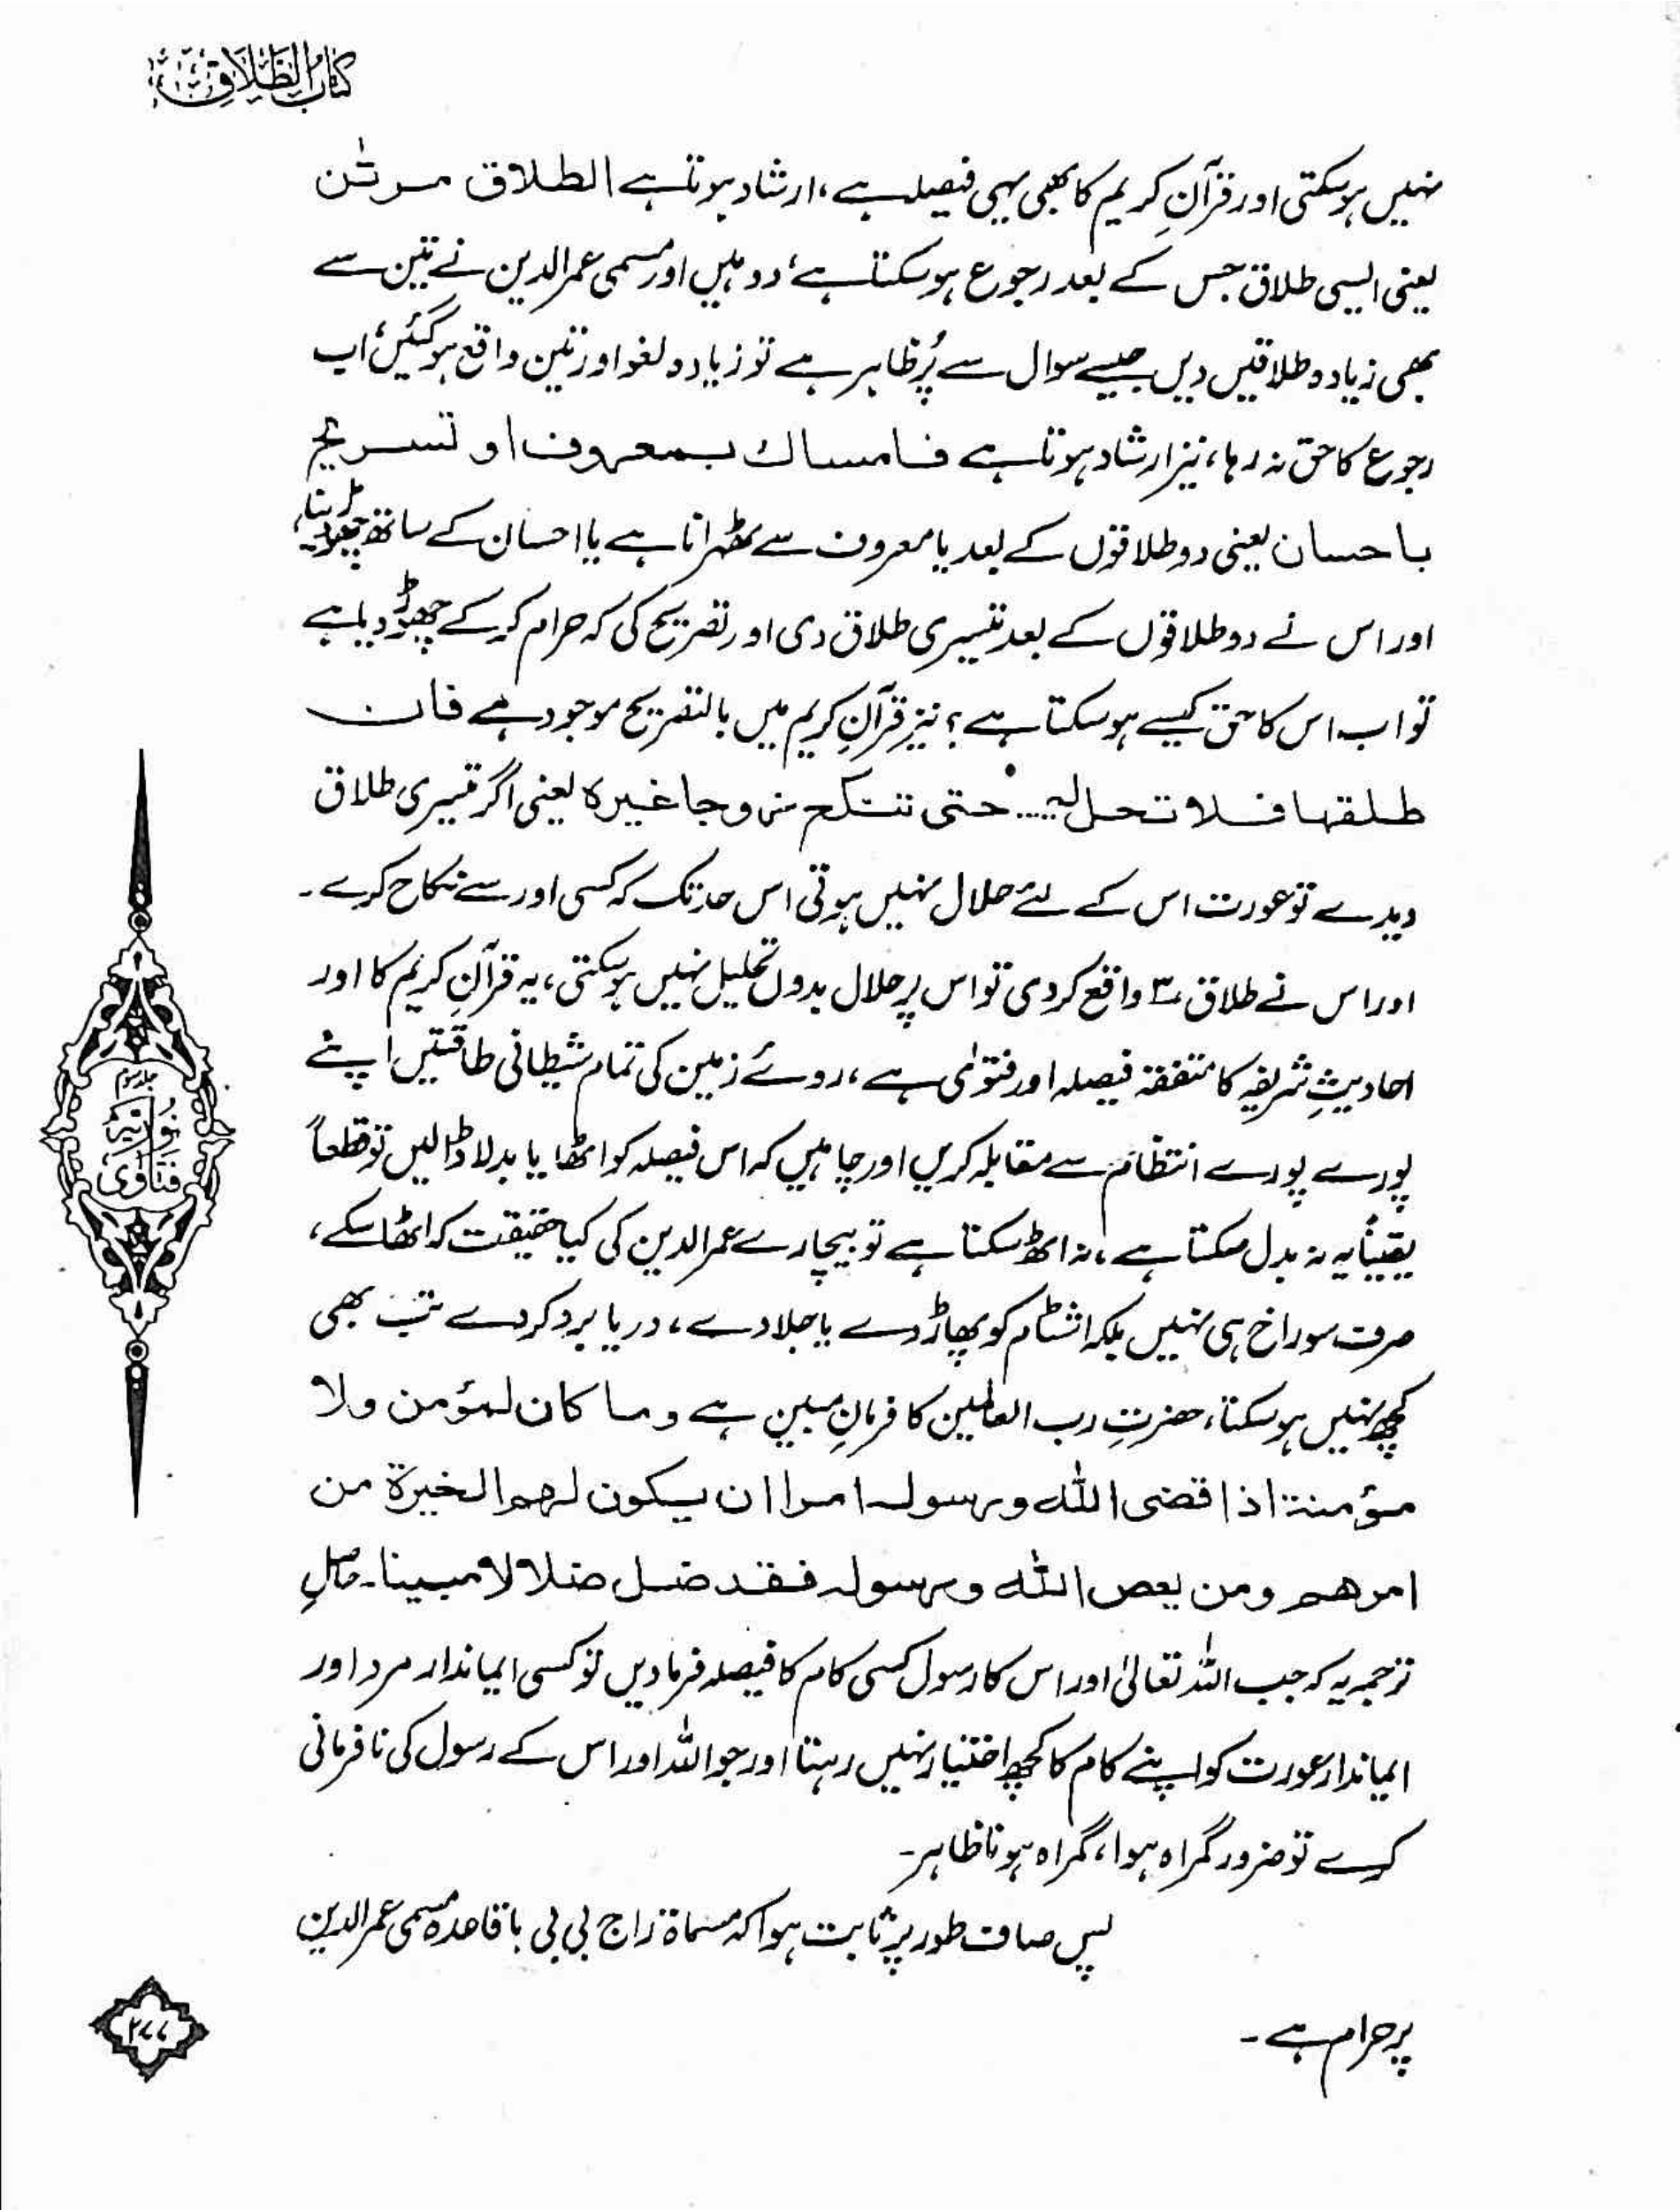 کتاب الطلاق
نہیں ہوسکتی اور قرآنِ کریم کا بھی یہی فیصلہ ہے، ارشاد ہوتا ہے الطلاق مرتٰن
یعنی ایسی طلاق جس کے بعد رجوع ہوسکتا ہے، دو ہیں اور مسمی عمرالدین نے تین سے
بھی زیادہ طلاقیں دیں جیسے سوال سے پُر ظاہر ہے تو زیادہ لغو اور تین واقع ہوگئیں، اب
رجوع کا حق نہ رہا، نیز ارشاد ہوتا ہے فامساك بمعروف او تسریح
باحسان یعنی دو طلاقوں کے بعد یا معروف سے ٹھہرانا ہے یا احسان کے ساتھ چھوڑ دینا،
اور اس نے دو طلاقوں کے بعد تیسری طلاق دی اور تصریح کی کہ حرام کرکے چھوڑ دیا ہے
تو اب اس کا حق کیسے ہوسکتا ہے؟ نیز قرآنِ کریم میں بالتصریح موجود ہے فان
طلقها فلا تحل لہ... حتی تنکح زوجا غیرہ یعنی اگر تیسری طلاق
دیدے تو عورت اس کے لئے حلال نہیں ہوتی اس حد تک کہ کسی اور سے نکاح کرے۔
اور اس نے طلاق ۳ واقع کردی تو اس پر حلال بدوں تحلیل نہیں ہوسکتی، یہ قرآنِ کریم کا اور
احادیثِ شریفہ کا متفقہ فیصلہ اور فتوٰی ہے، روئے زمین کی تمام شیطانی طاقتیں اپنے
پورے پورے انتظام سے مقابلہ کریں اور چاہیں کہ اس فیصلہ کو اٹھا یا بدلا ڈالیں تو قطعاً
یقیناً یہ نہ بدل سکتا ہے، نہ اٹھ سکتا ہے تو بیچارے عمرالدین کی کیا حقیقت کہ اٹھا سکے،
صرف سوراخ ہی نہیں بلکہ اشٹام کو پھاڑ دے یا جلا دے، دریا برد کردے تب بھی
کچھ نہیں ہوسکتا، حضرتِ رب العالمین کا فرمانِ مبین ہے وما کان لمؤمن ولا
مؤمنة اذا قضی اللہ ورسولہ امرا ان یکون لهم الخیرة من
امرهم ومن یعص اللہ ورسولہ فقد ضل ضلالا مبینا۔ حاصلِ
ترجمہ یہ کہ جب اللہ تعالیٰ اور اس کا رسول کسی کام کا فیصلہ فرمادیں تو کسی ایماندار مرد اور
ایماندار عورت کو اپنے کام کا کچھ اختیار نہیں رہتا اور جو اللہ اور اس کے رسول کی نافرمانی
کرے تو ضرور گمراہ ہوا، گمراہ ہونا ظاہر۔
پس صاف طور پر ثابت ہوا کہ مسماۃ راج بی بی باقاعدہ مسمی عمرالدین
پر حرام ہے۔
جلد سوم
نوریہ
فتاوی
۲۷۷